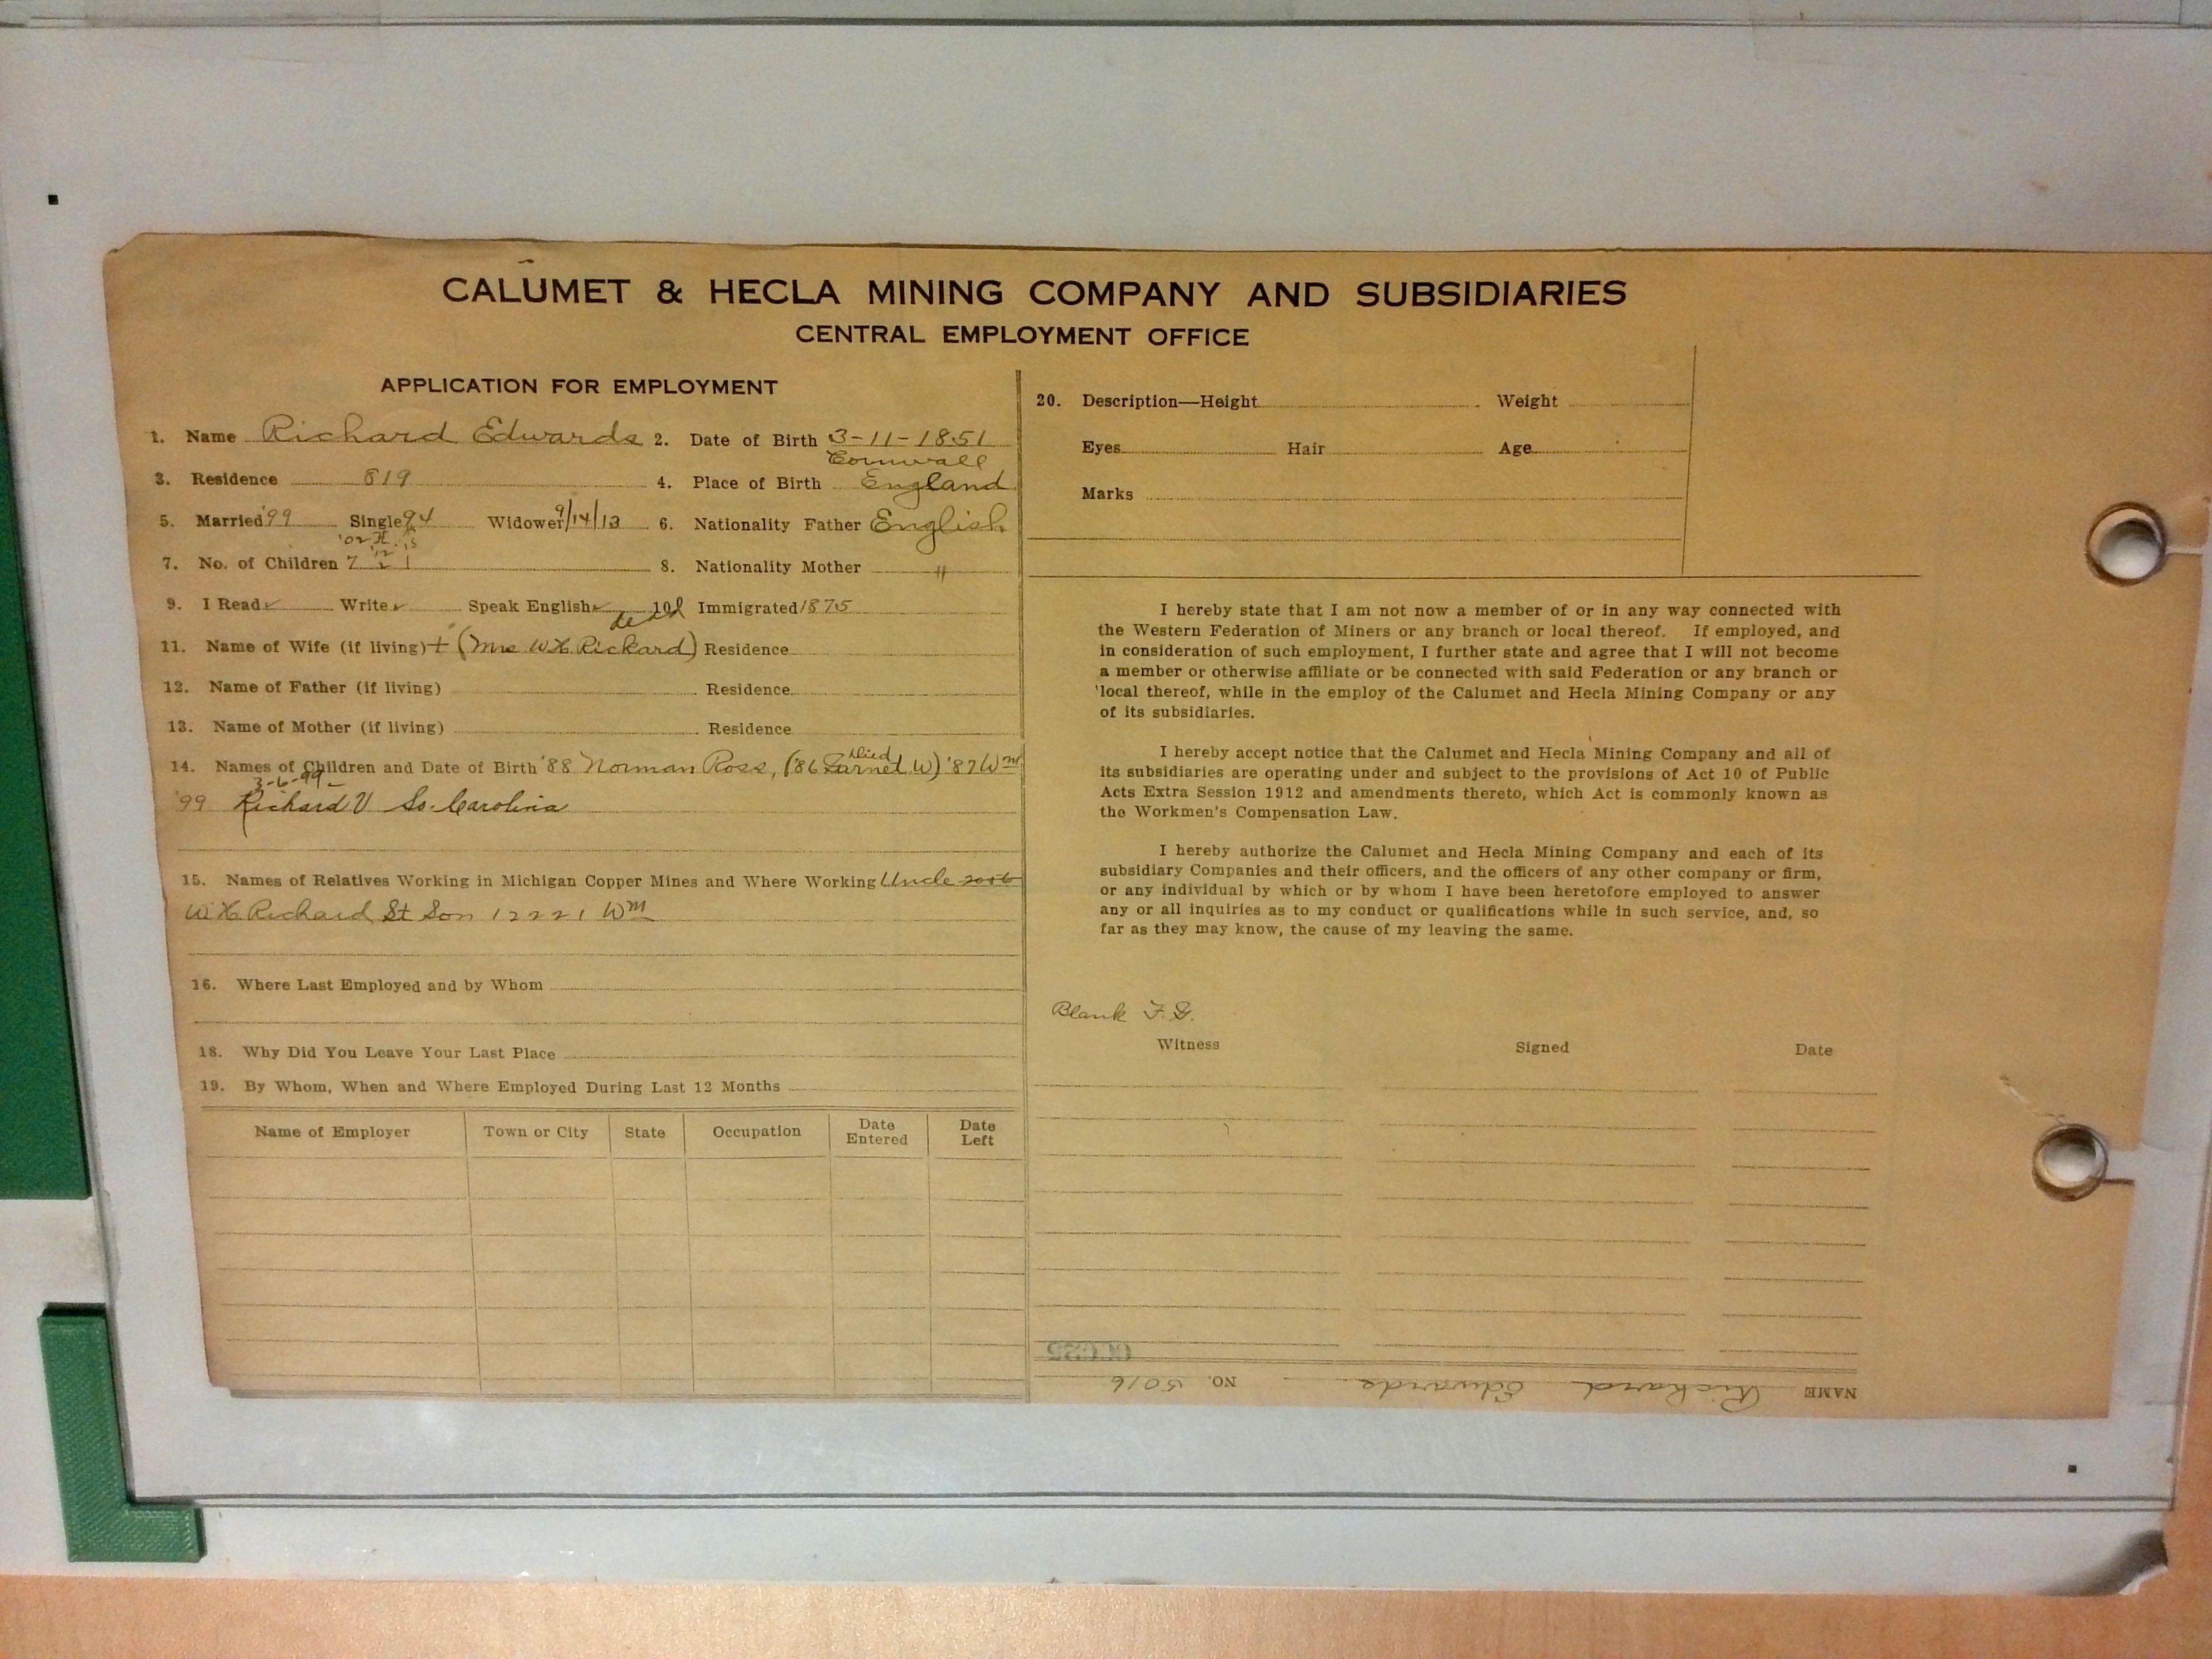 CALUMET & HECLA MINING COMPANY AND SUBSIDIARIES
CENTRAL EMPLOYMENT OFFICE
APPLICATION FOR EMPLOYMENT
1. Name Richard Edwards 2. Date of Birth 3-11-1851
Cornwall
3. Residence 819 4. Place of Birth England
5. Married '99 Single 94 Widower 9/14/13 6. Nationality Father English
'02 '12 '13
7. No. of Children 7 2 1 8. Nationality Mother "
9. I Read ✓ Write ✓ Speak English ✓ 10. Immigrated 1875
dead
11. Name of Wife (if living) + (Mrs W H Rickard) Residence
12. Name of Father (if living) Residence
13. Name of Mother (if living) Residence
Died
14. Names of Children and Date of Birth '88 Norman Ross, ('86 Garnet W) '87 Wm
3-6-99
'99 Richard V So. Carolina
15. Names of Relatives Working in Michigan Copper Mines and Where Working Uncle
W H Richard St Son 12221 Wm
16. Where Last Employed and by Whom
18. Why Did You Leave Your Last Place
19. By Whom, When and Where Employed During Last 12 Months
Name of Employer Town or City State Occupation Date Entered Date Left
20. Description—Height Weight
Eyes Hair Age
Marks
I hereby state that I am not now a member of or in any way connected with
the Western Federation of Miners or any branch or local thereof. If employed, and
in consideration of such employment, I further state and agree that I will not become
a member or otherwise affiliate or be connected with said Federation or any branch or
local thereof, while in the employ of the Calumet and Hecla Mining Company or any
of its subsidiaries.
I hereby accept notice that the Calumet and Hecla Mining Company and all of
its subsidiaries are operating under and subject to the provisions of Act 10 of Public
Acts Extra Session 1912 and amendments thereto, which Act is commonly known as
the Workmen's Compensation Law.
I hereby authorize the Calumet and Hecla Mining Company and each of its
subsidiary Companies and their officers, and the officers of any other company or firm,
or any individual by which or by whom I have been heretofore employed to answer
any or all inquiries as to my conduct or qualifications while in such service, and, so
far as they may know, the cause of my leaving the same.
Blank F.G.
Witness Signed Date
NAME Richard Edwards NO. 5016